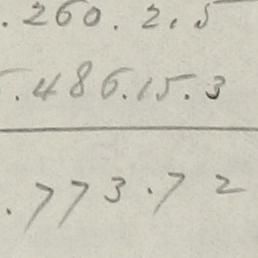 .260.2.5
.486.15.3
.773.72